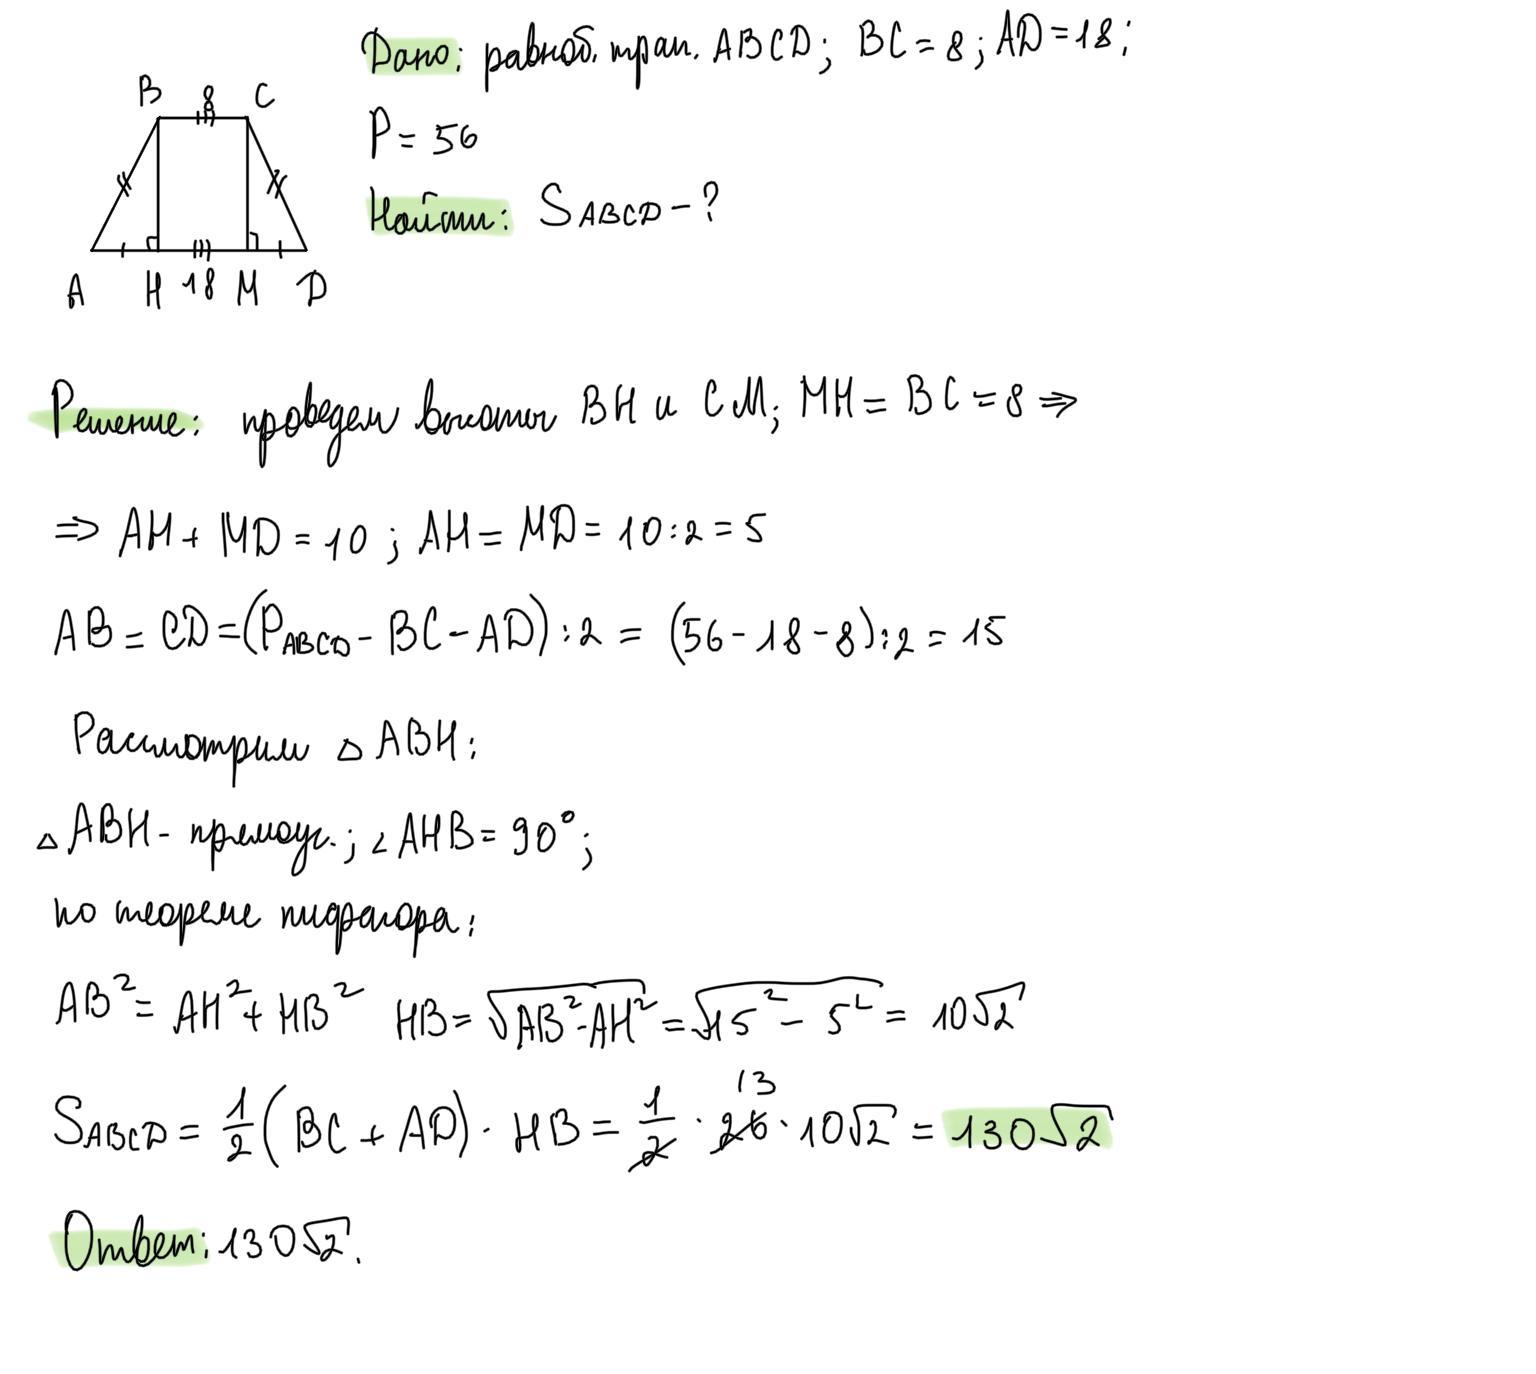 Дано: равноб. трап. ABCD; BC = 8; AD = 18;
P = 56
Найти: SABCD - ?
B 8 C
A H 18 M D
Решение: проведем высоты BH и CM; MH = BC = 8 ⇒
⇒ AH + MD = 10; AH = MD = 10:2 = 5
AB = CD = (PABCD - BC - AD) : 2 = (56 - 18 - 8) : 2 = 15
Рассмотрим △ABH:
△ABH - прямоуг.; ∠AHB = 90°;
по теореме пифагора:
AB² = AH² + HB² HB = √AB² - AH² = √15² - 5² = 10√2
13
SABCD = 1/2 (BC + AD) · HB = 1/2 · 26 · 10√2 = 130√2
Ответ: 130√2.